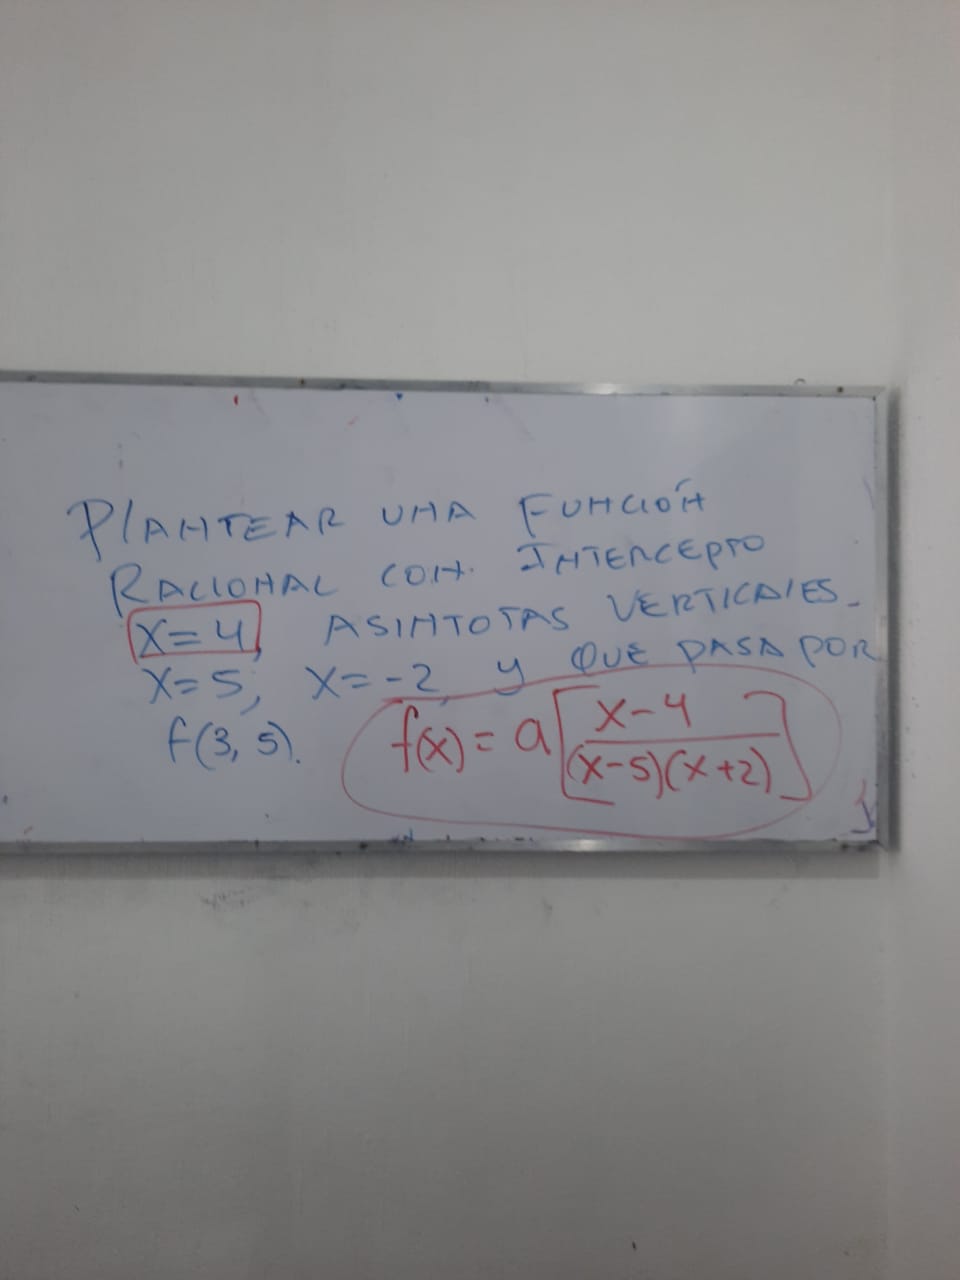 PLANTEAR UNA FUNCIÓN
RACIONAL CON INTERCEPTO
X=4, ASINTOTAS VERTICALES
X=5, X=-2, y QUE PASA POR
f(3, 5).
f(x) = a[(x-4)/((x-5)(x+2))]